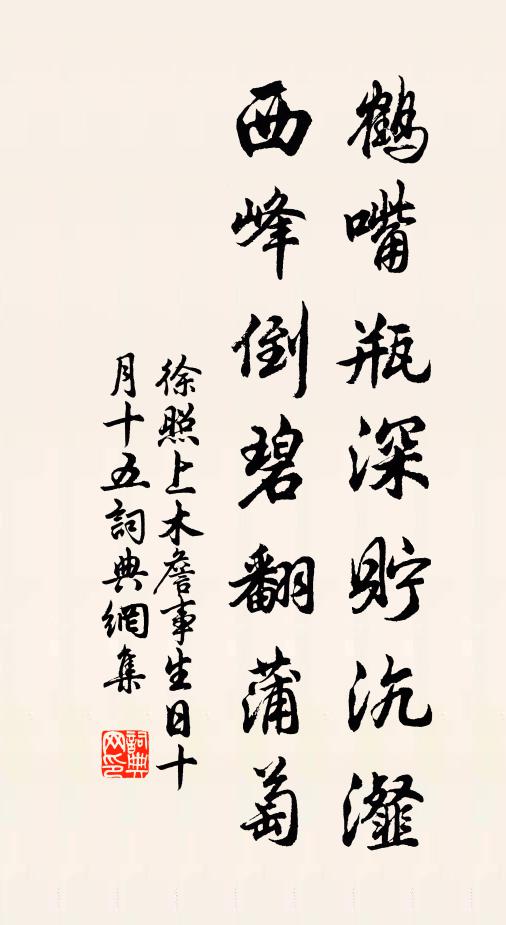 鶴嘴瓶深貯沆瀣
西峰倒碧翻蒲萄
徐照上木詹事生日十
月十五詞典網集
詞典
网印